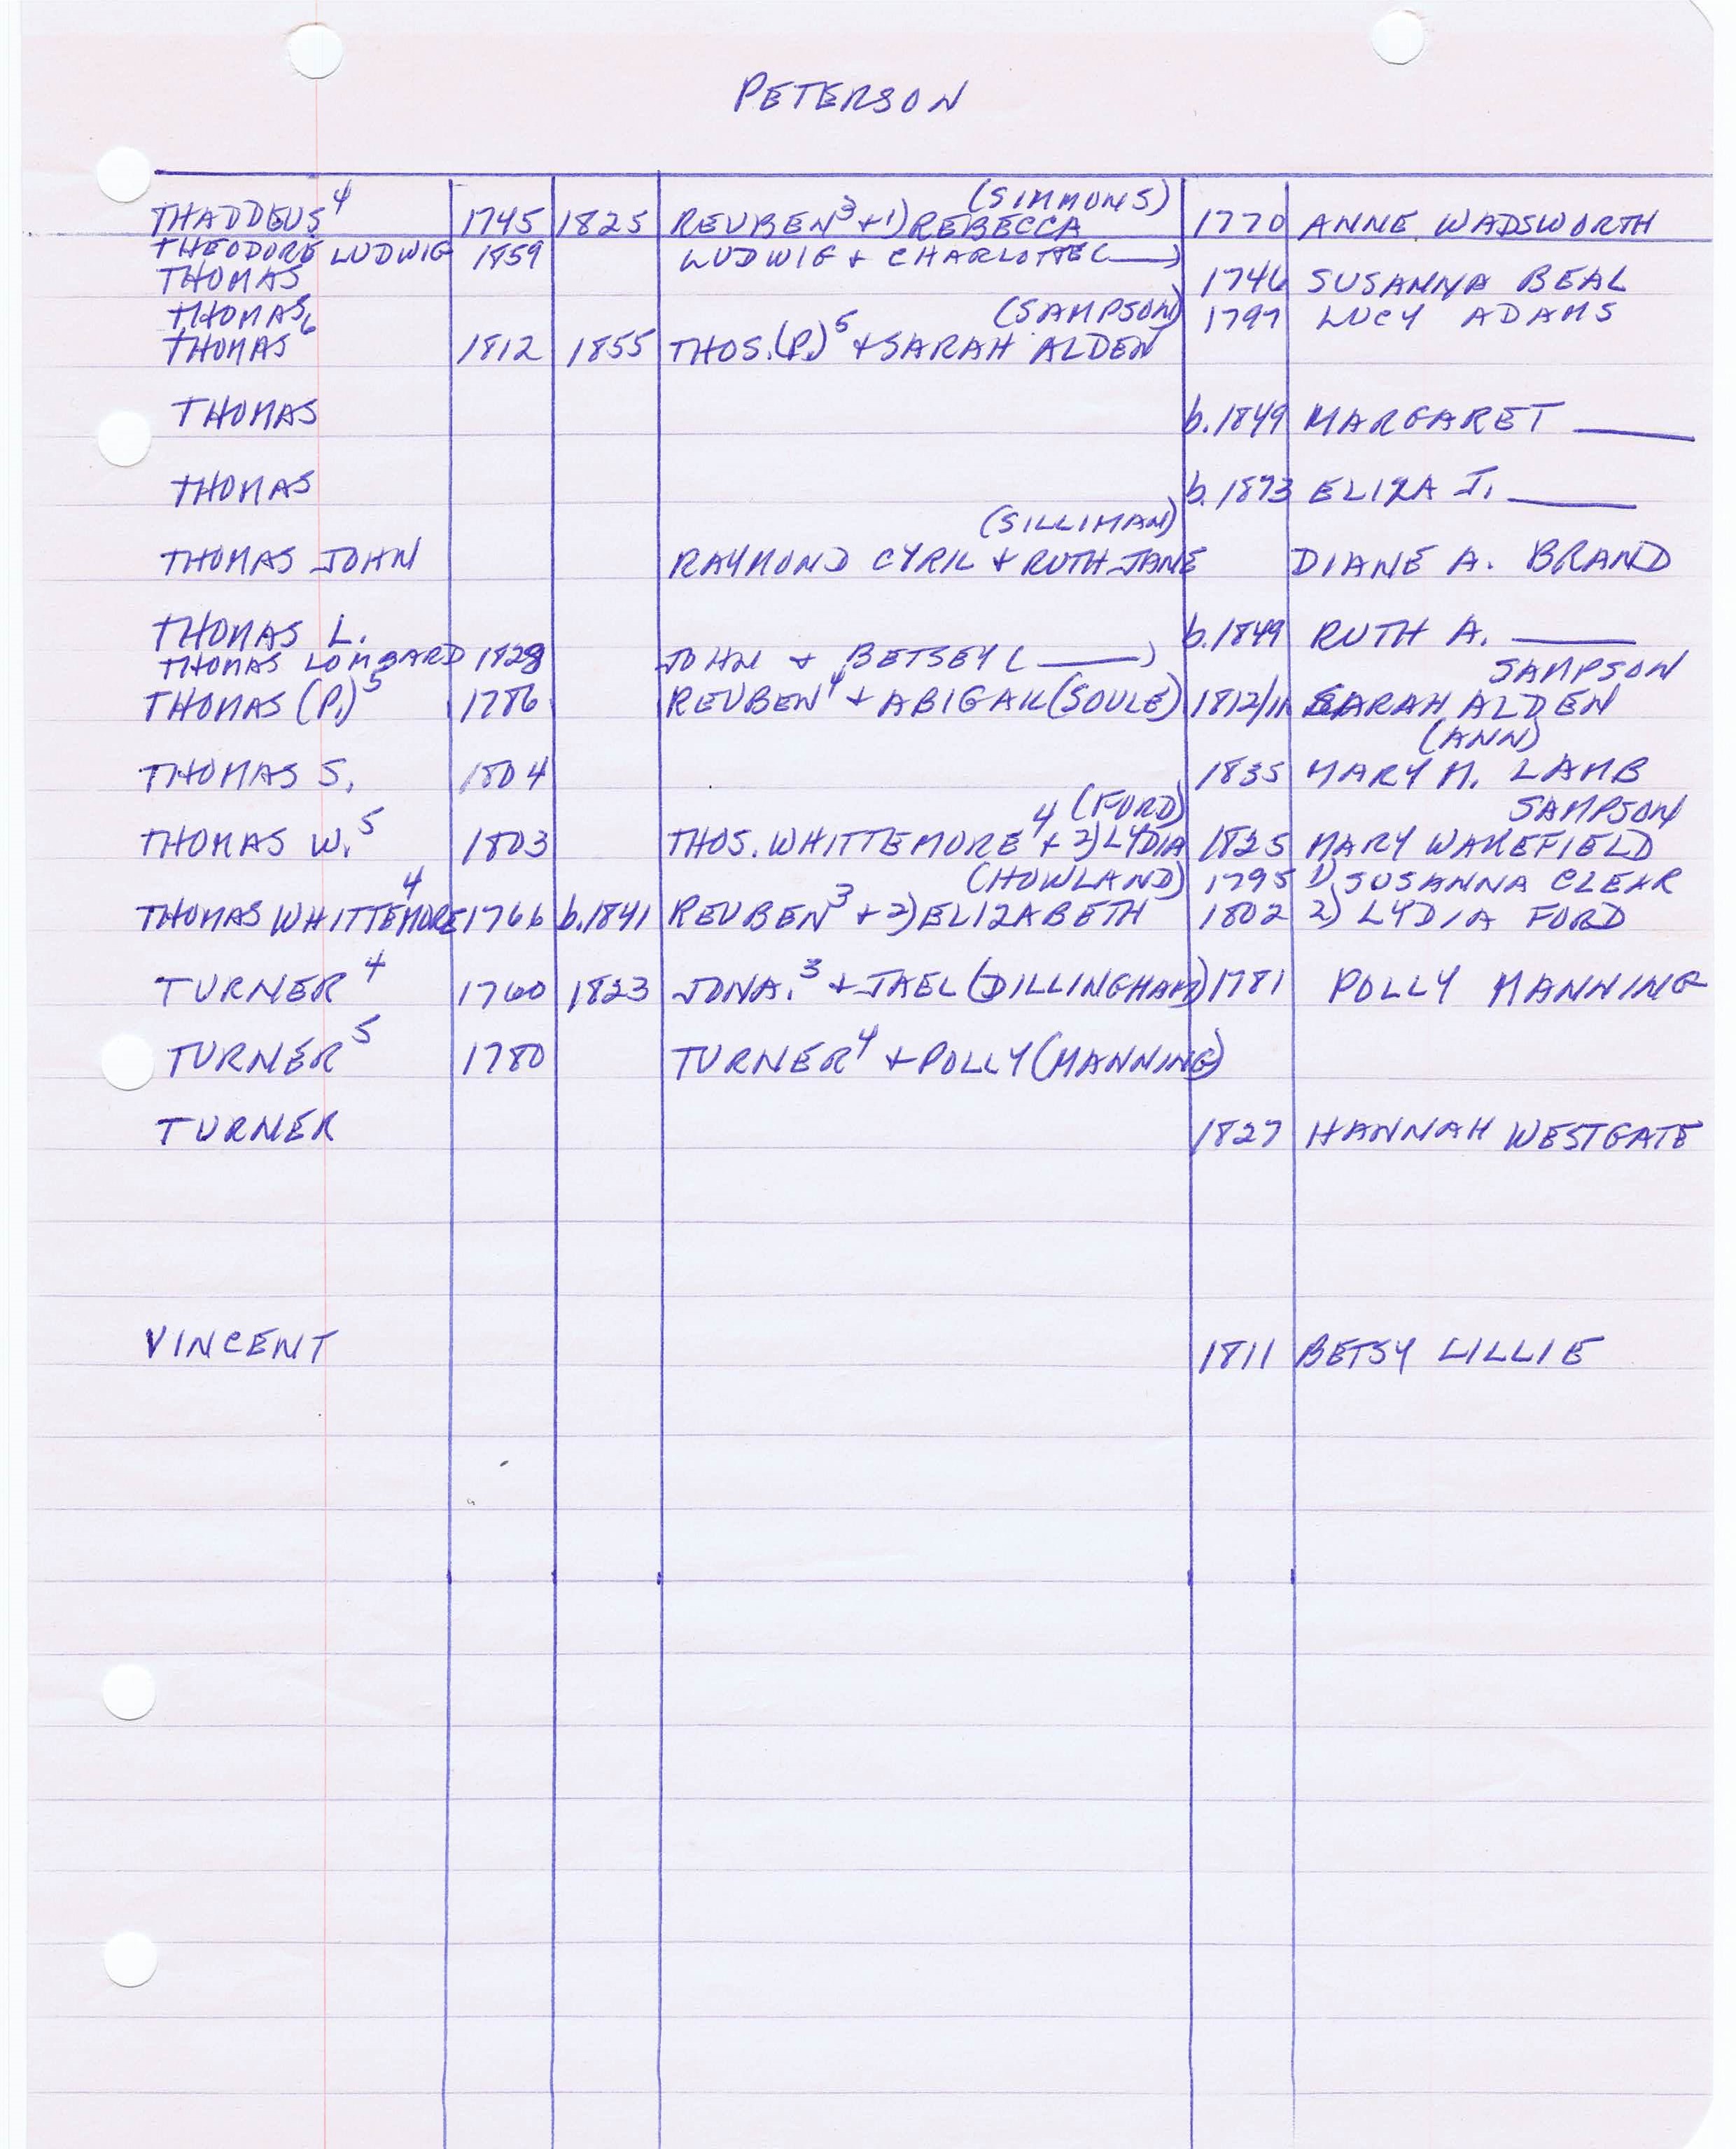 PETERSON
(SIMMONS)
THADDEUS⁴ 1745 1825 REUBEN³ + 1) REBECCA 1770 ANNE WADSWORTH
THEODORE LUDWIG 1859 LUDWIG + CHARLOTTE (___)
THOMAS 1746 SUSANNA BEAL
THOMAS (SAMPSON) 1797 LUCY ADAMS
THOMAS⁶ 1812 1855 THOS. (P.)⁵ + SARAH ALDEN
THOMAS b.1849 MARGARET ___
THOMAS b.1873 ELIZA J. ___
(SILLIMAN)
THOMAS JOHN RAYMOND CYRIL + RUTH JANE DIANE A. BRAND
THOMAS L. b.1849 RUTH A. ___
THOMAS LOMBARD 1828 JOHN + BETSEY (___) SAMPSON
THOMAS (P.)⁵ 1786 REUBEN⁴ + ABIGAIL (SOULE) 1812/11 SARAH ALDEN
(ANN)
THOMAS S. 1804 1835 MARY M. LAMB
(FORD) SAMPSON
THOMAS W.⁵ 1803 THOS. WHITTEMORE⁴ + 2) LYDIA 1825 MARY WAKEFIELD
(HOWLAND) 1795 1) SUSANNA CLEAR
THOMAS WHITTEMORE⁴ 1766 b.1841 REUBEN³ + 2) ELIZABETH 1802 2) LYDIA FORD
TURNER⁴ 1760 1823 JONA.³ + JAEL (DILLINGHAM) 1781 POLLY MANNING
TURNER⁵ 1780 TURNER⁴ + POLLY (MANNING)
TURNER 1827 HANNAH WESTGATE
VINCENT 1811 BETSY LILLIE